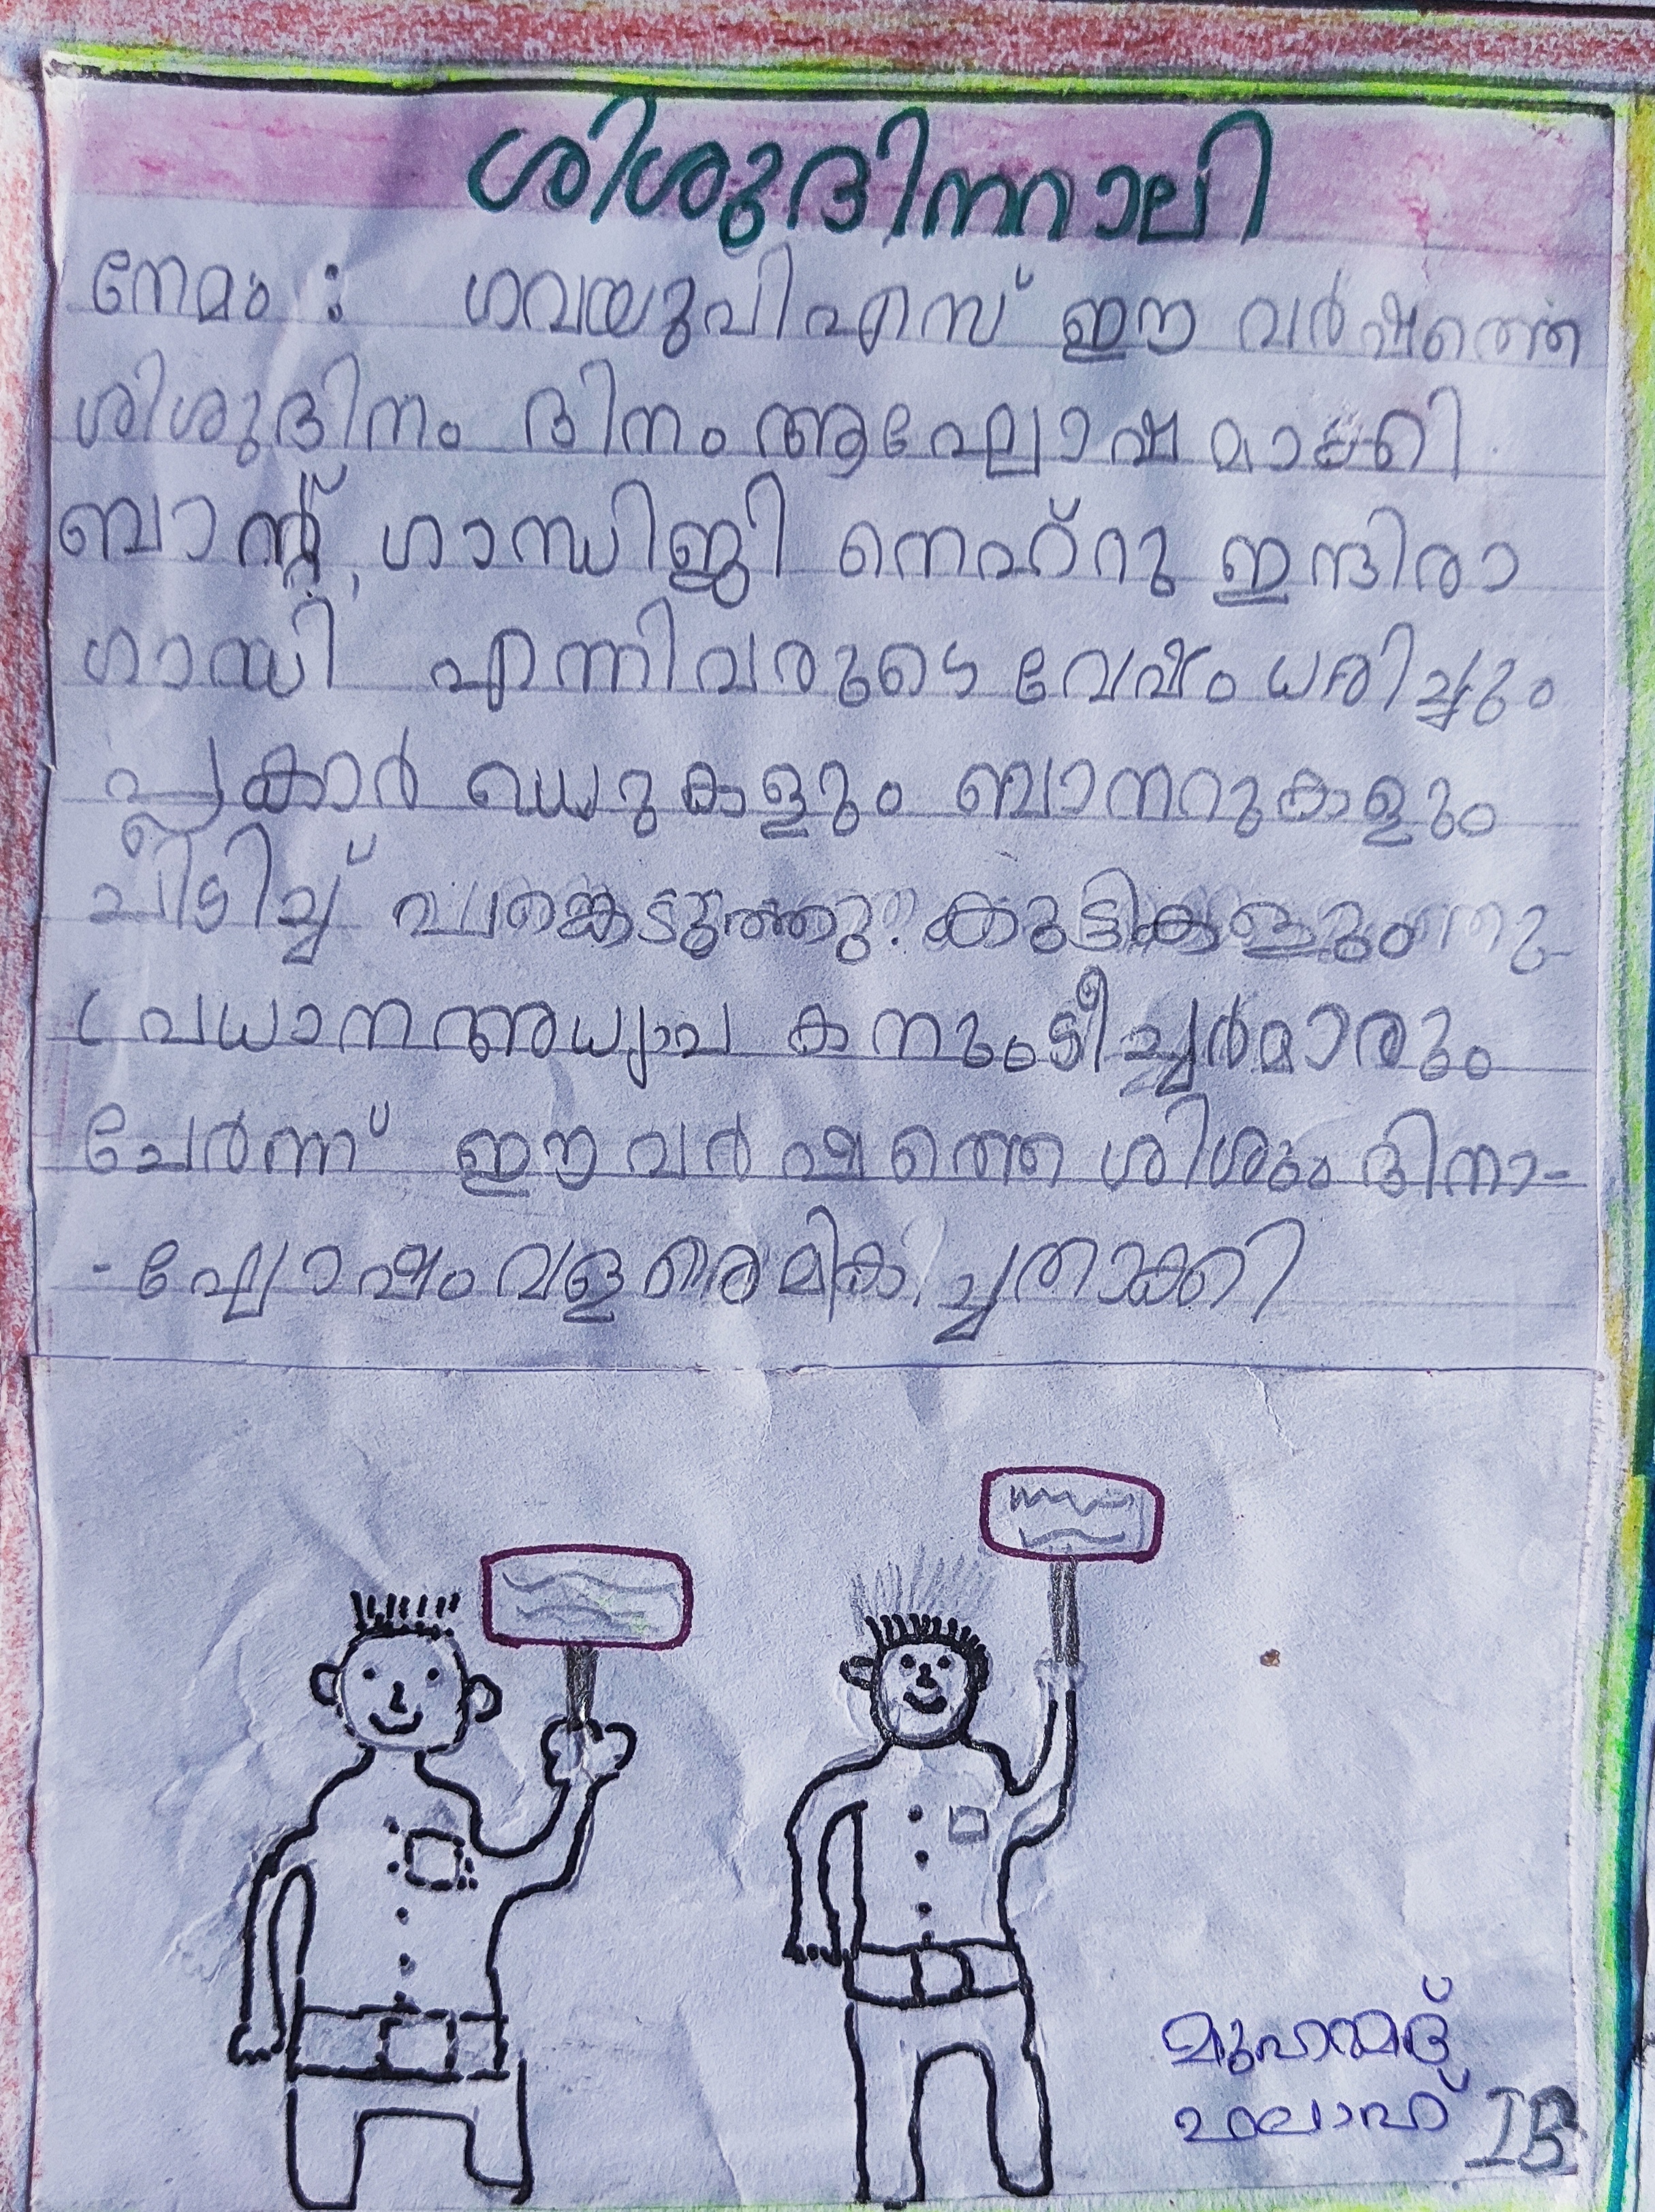 ശിശുദിനറാലി
നേമം : ഗവയുപിഎസ് ഈ വർഷത്തെ
ശിശുദിനം ദിനം ആഘോഷമാക്കി
ബാന്റ്, ഗാന്ധിജി നെഹ്റു ഇന്ദിരാ
ഗാന്ധി എന്നിവരുടെ വേഷം ധരിച്ചും
പ്ലക്കാർ ഡുകളും ബാനറുകളും
പിടിച്ച് പങ്കെടുത്തു. കുട്ടികളും
പ്രധാനഅധ്യാപ കനും ടീച്ചർമാരും
ചേർന്ന് ഈ വർഷത്തെ ശിശു ദിനാ-
- ഘോഷം വളരെ മിക ച്ചതാക്കി
മുഹമ്മദ്
ഫലാഹ് IB